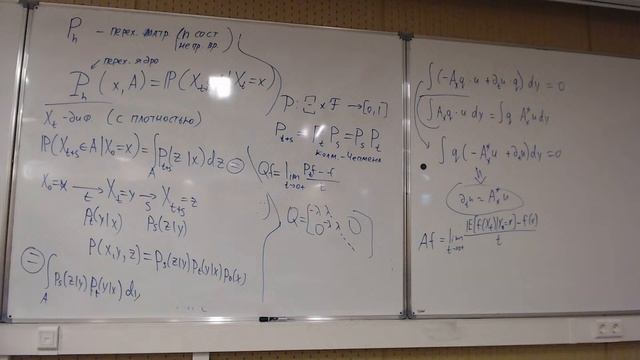 P_h - перех. матр. (h сост непр. вр.)
перех. ядро
P_h (x, A) = P(X_{t+h} ∈ A | X_t = x)
X_t - диф (с плотностью)
P(X_{t+s} ∈ A | X_0 = x) = ∫_A p_{t+s}(z|x) dz =
X_0 = x →_t X_t = y →_s X_{t+s} = z
p_t(y|x) p_s(z|y)
p(x, y, z) = p_s(z|y) p_t(y|x) p_0(x)
= ∫_A p_s(z|y) p_t(y|x) d
P: Ξ × F → [0,1]
P_{t+s} = P_t P_s = P_s P_t
Колм.-Чепмена
Qf = lim_{t→0+} (P_t f - f)/t
Q = [-λ λ 0 -λ λ 0]
∫(-A_x q · u + ∂_t u · q) dy = 0
∫ A_x q · u dy = ∫ q A_x^* u dy
∫ q (-A_x^* u + ∂_t u) dy = 0
∂_t u = A_x^* u
Af = lim_{t→0+} (E[f(X_t)|X_0 = x] - f(x))/t